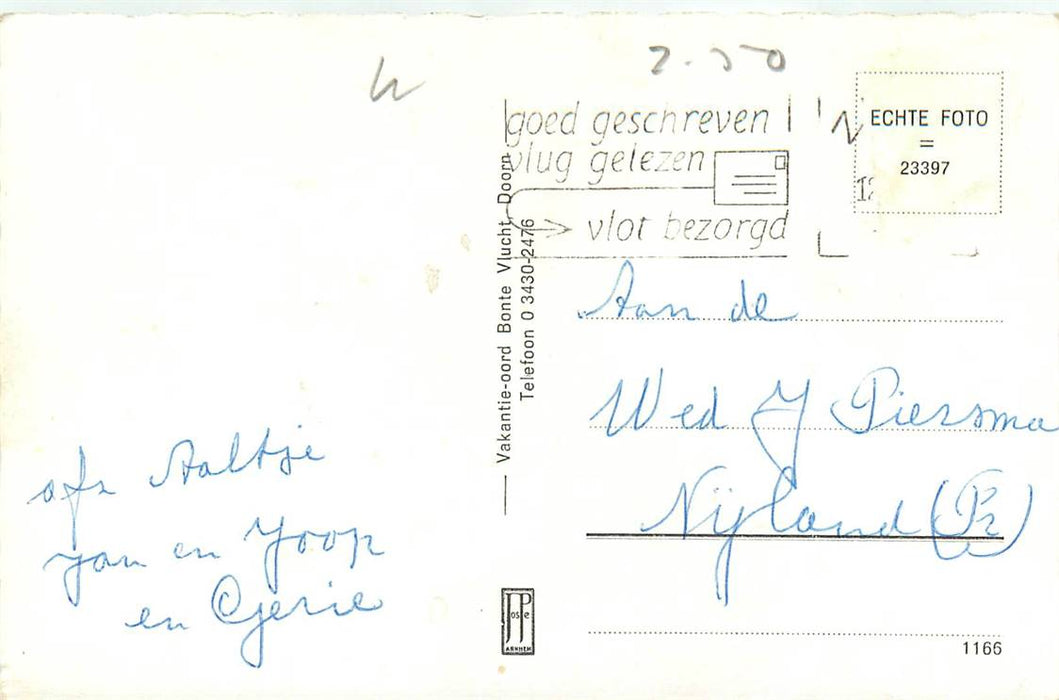 2.50
goed geschreven
vlug gelezen
vlot bezorgd
ECHTE FOTO
=
23397
12
Vakantie-oord Bonte Vlucht, Doorn
Telefoon 0 3430-2476
Aan de
Wed J Piersma
Nijland (Fr)
afz Aaltje
Jan en Joop
en Gerie
JosPé
ARNHEM
1166